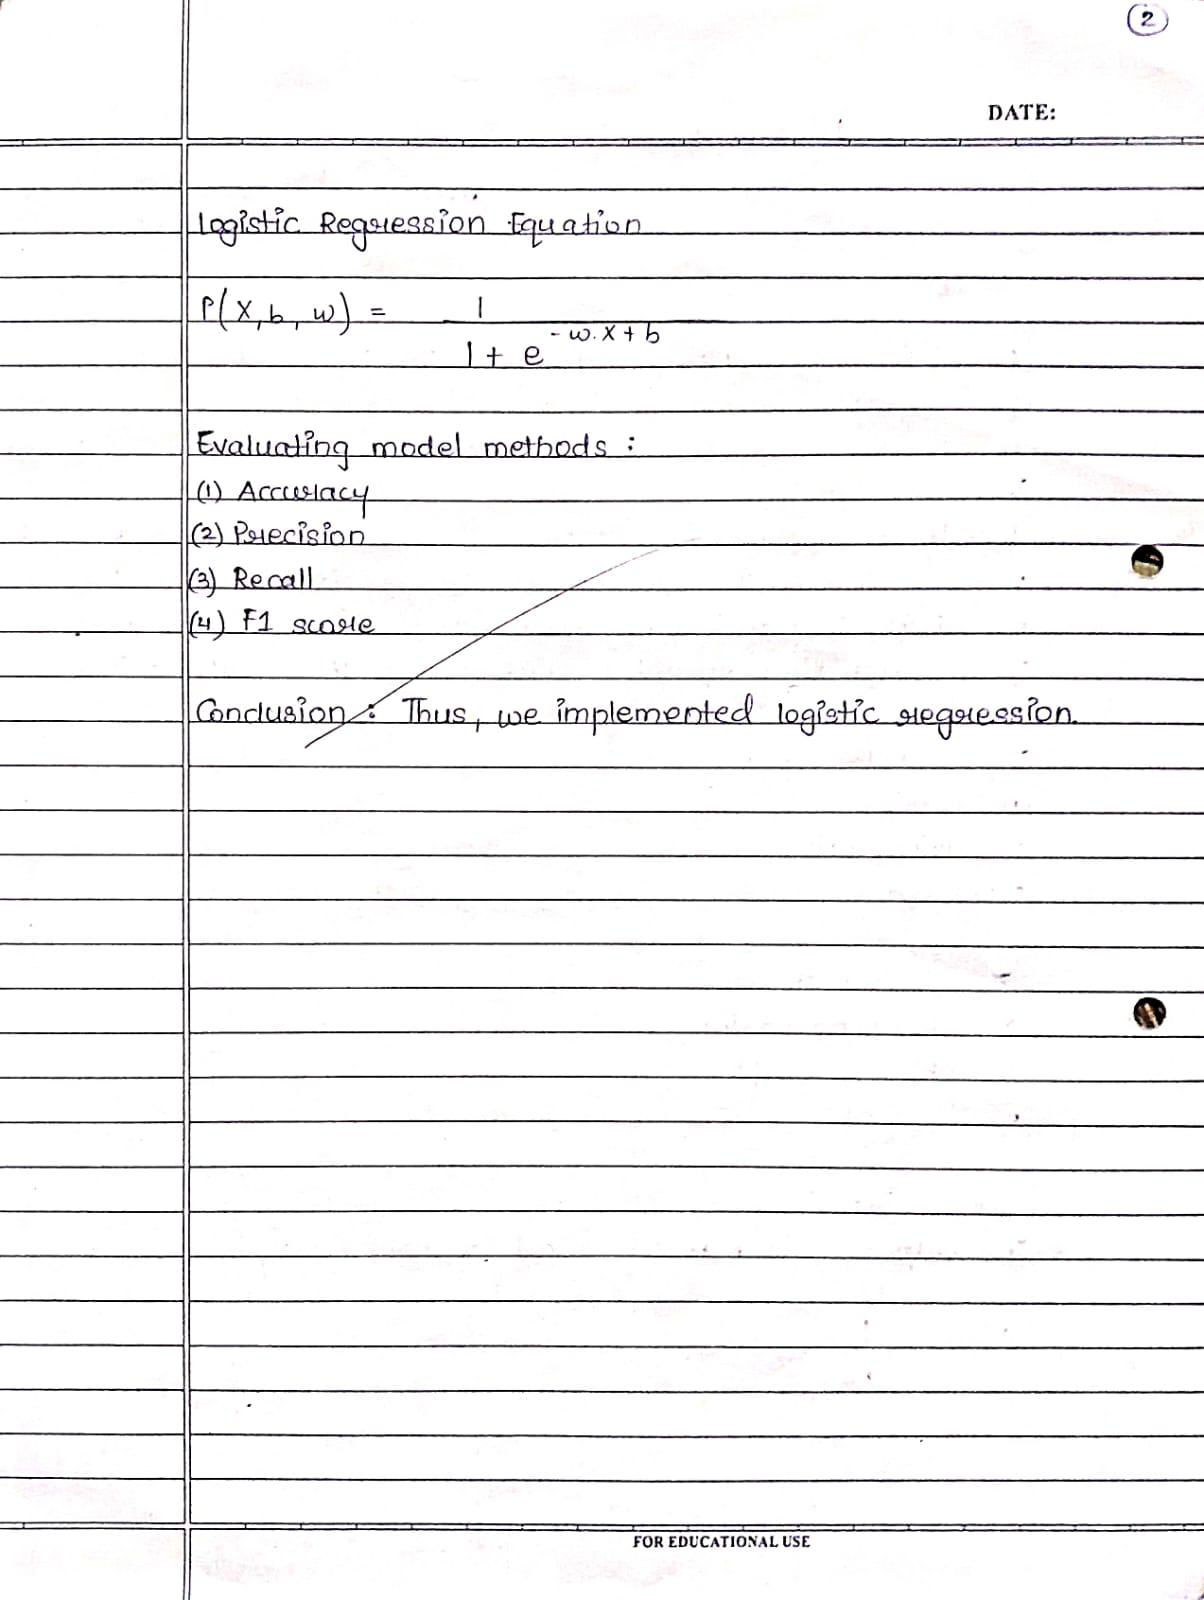 2
DATE:
Logistic Regression Equation
P(X, b, w) = 1 / 1 + e^-w.X + b
Evaluating model methods :
(1) Accuracy
(2) Precision
(3) Recall
(4) F1 score
Conclusion : Thus, we implemented logistic regression.
FOR EDUCATIONAL USE